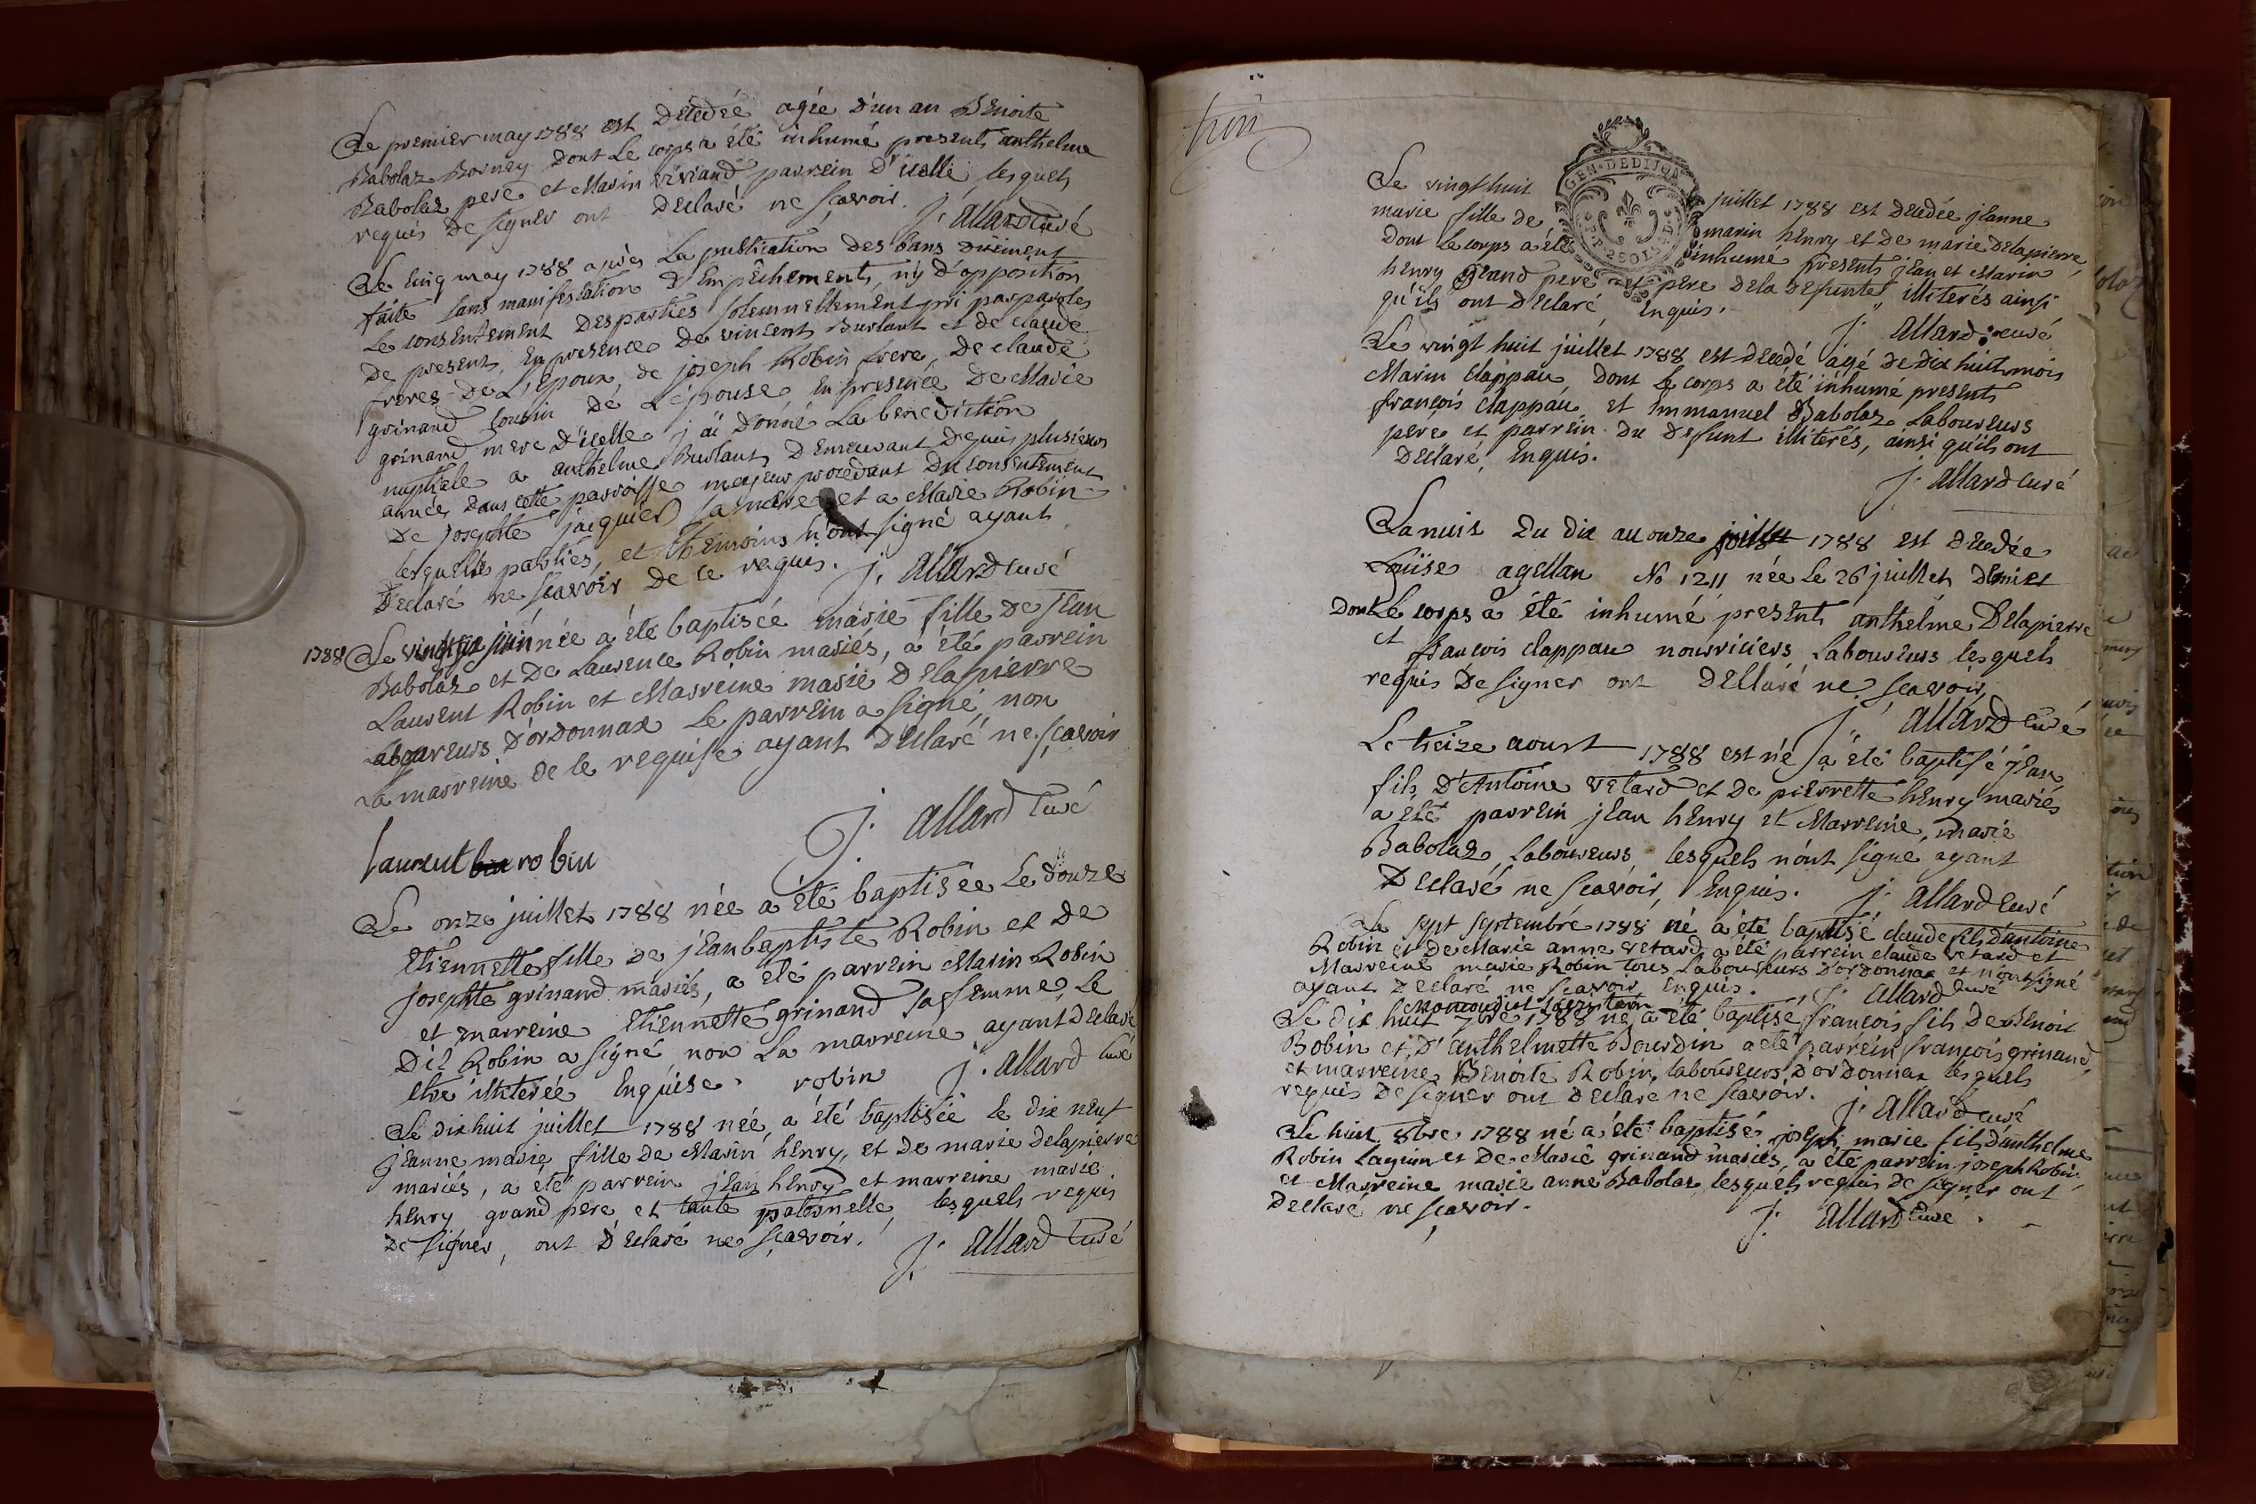 Le premier may 1788 est décédée agée d'un an Benoite
Babolaz Borney dont le corps a été inhumé presents anthelme
Babolaz pere et Marin viviand parrein d'icelle lesquels
requis de signer ont déclaré ne scavoir. j. allard curé
Le cinq may 1788 après la publication des bans duëment
faite sans manifestation d'empêchements, n'y d'opposition
le consentement des parties solemnellement pri par paroles
de present, en presence de vincent Burlant et de claude
freres de l'Epoux, de joseph Robin frere, de claude
grinand cousin de l'épouse en presence de Marie
grinand mere d'icelle j'ai donné la benediction
nuptiale a anthelme Burlant demeurant depuis plusieurs
année dans cette parroisse majeur procedant du consentement
de josephte jacquier sa mere et a Marie Robin
lesquelles parties, et témoins n'ont signé ayant
declaré ne scavoir de ce requis. j. allard curé
1788 Le vingt six juin née a été baptisée marie fille de jean
Babolaz et de Laurence Robin mariés, a été parrein
Laurent Robin et Marreine marie delapierre
laboureurs d'ordonnax le parrein a signé non
la marreine de ce requise ayant déclaré ne scavoir
j. allard curé
laurent robin
Le onze juillet 1788 née a été baptisée le douze
Etiennette fille de jean baptiste Robin et de
josephte grinand mariés, a été parrein Marin Robin
et marreine Etiennette grinand sa femme, le
dit Robin a signé non la marreine ayant déclaré
etre illiterée enquise. robin j. allard curé
Le dix huit juillet 1788 née, a été baptisée le dix neuf
jeanne marie fille de Marin henry, et de marie delapierre
mariés, a été parrein jean henry et marreine marie
henry grand pere et tante paternelle lesquels requis
de signer, ont déclaré ne scavoir. j. allard curé
GEN. DE DIJON
Le vingt huit juillet 1788 est décédée jeanne
marie fille de marin henry et de marie delapierre,
dont le corps a été inhumé presents jean et Marin
henry grand pere et pere de la defunte illiterés ainsi
qu'ils ont déclaré enquis. j. allard curé
Le vingt huit juillet 1788 est décédé agé de dix huit mois
Marin clappau, dont le corps a été inhumé presents
françois clappau et Emmanuel Babolaz laboureurs
pere et parrein du defunt illiterés, ainsi qu'ils ont
déclaré, enquis.
j. allard curé
La nuit du dix au onze 1788 est décédée
Louise agellan No 1211 née le 26 juillet dernier
dont le corps a été inhumé presents anthelme Delapierre
et françois clappau nourriciers laboureurs lesquels
requis de signer ont déclaré ne scavoir,
j. allard curé
Le treize aoust 1788 est né a été baptisé jean
fils d'Antoine vetard et de pierrette henry mariés
a été parrein jean henry et Marreine, marie
Babolaz laboureurs, lesquels n'ont signé ayant
déclaré ne scavoir, enquis. j. allard curé
Le sept septembre 1788 né a été baptisé claude fils d'antoine
Robin et de Marie anne vetard a été parrein claude vetard et
Marreine marie Robin tous laboureurs d'ordonnax et n'ont signé
ayant déclaré ne scavoir enquis. j. allard curé
Le dix huit 7bre 1788 né a été baptisé françois fils de Benoit
Bobin et d'anthelmette Bourdin a été parrein françois grinand,
et marreine Benoite Robin, laboureurs d'ordonnax lesquels
requis de signer ont déclaré ne scavoir. j. allard curé
Le huit 8bre 1788 né a été baptisé joseph marie fils d'anthelme
Robin et de Marie grinand mariés, a été parrein joseph Robin,
et Marreine marie anne Babolaz lesquels requis de signer ont
déclaré ne scavoir. j. allard curé.